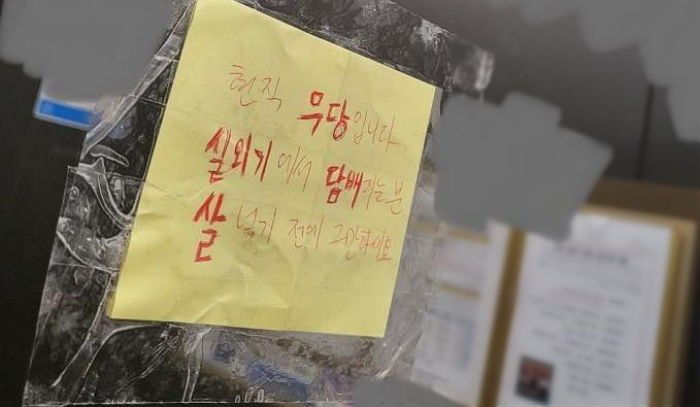 현직 무당입니다
실외기에서 담배피는분
살 넣기 전에 그만하세요